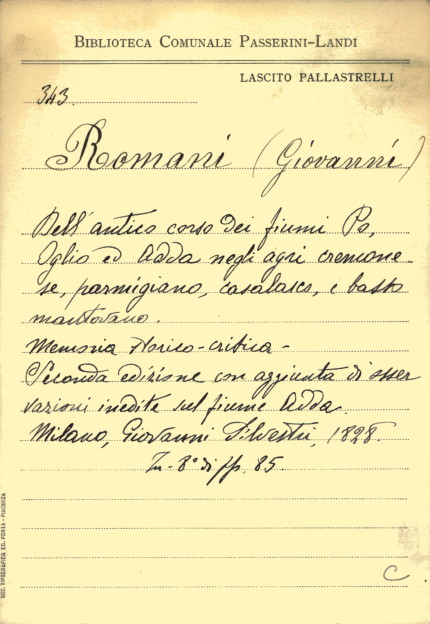 BIBLIOTECA COMUNALE PASSERINI-LANDI
LASCITO PALLASTRELLI
343.
Romani (Giovanni)
Dell'antico corso dei fiumi Po,
Oglio ed Adda negli agri cremone-
se, parmigiano, casalasco, e basso
mantovano.
Memoria storico-critica -
Seconda edizione con aggiunta di osser
vazioni inedite sul fiume Adda.
Milano, Giovanni Silvestri, 1828.
In-8° di pp. 85.
C
SOC. TIPOGRAFICA ED. PORTA - PIACENZA